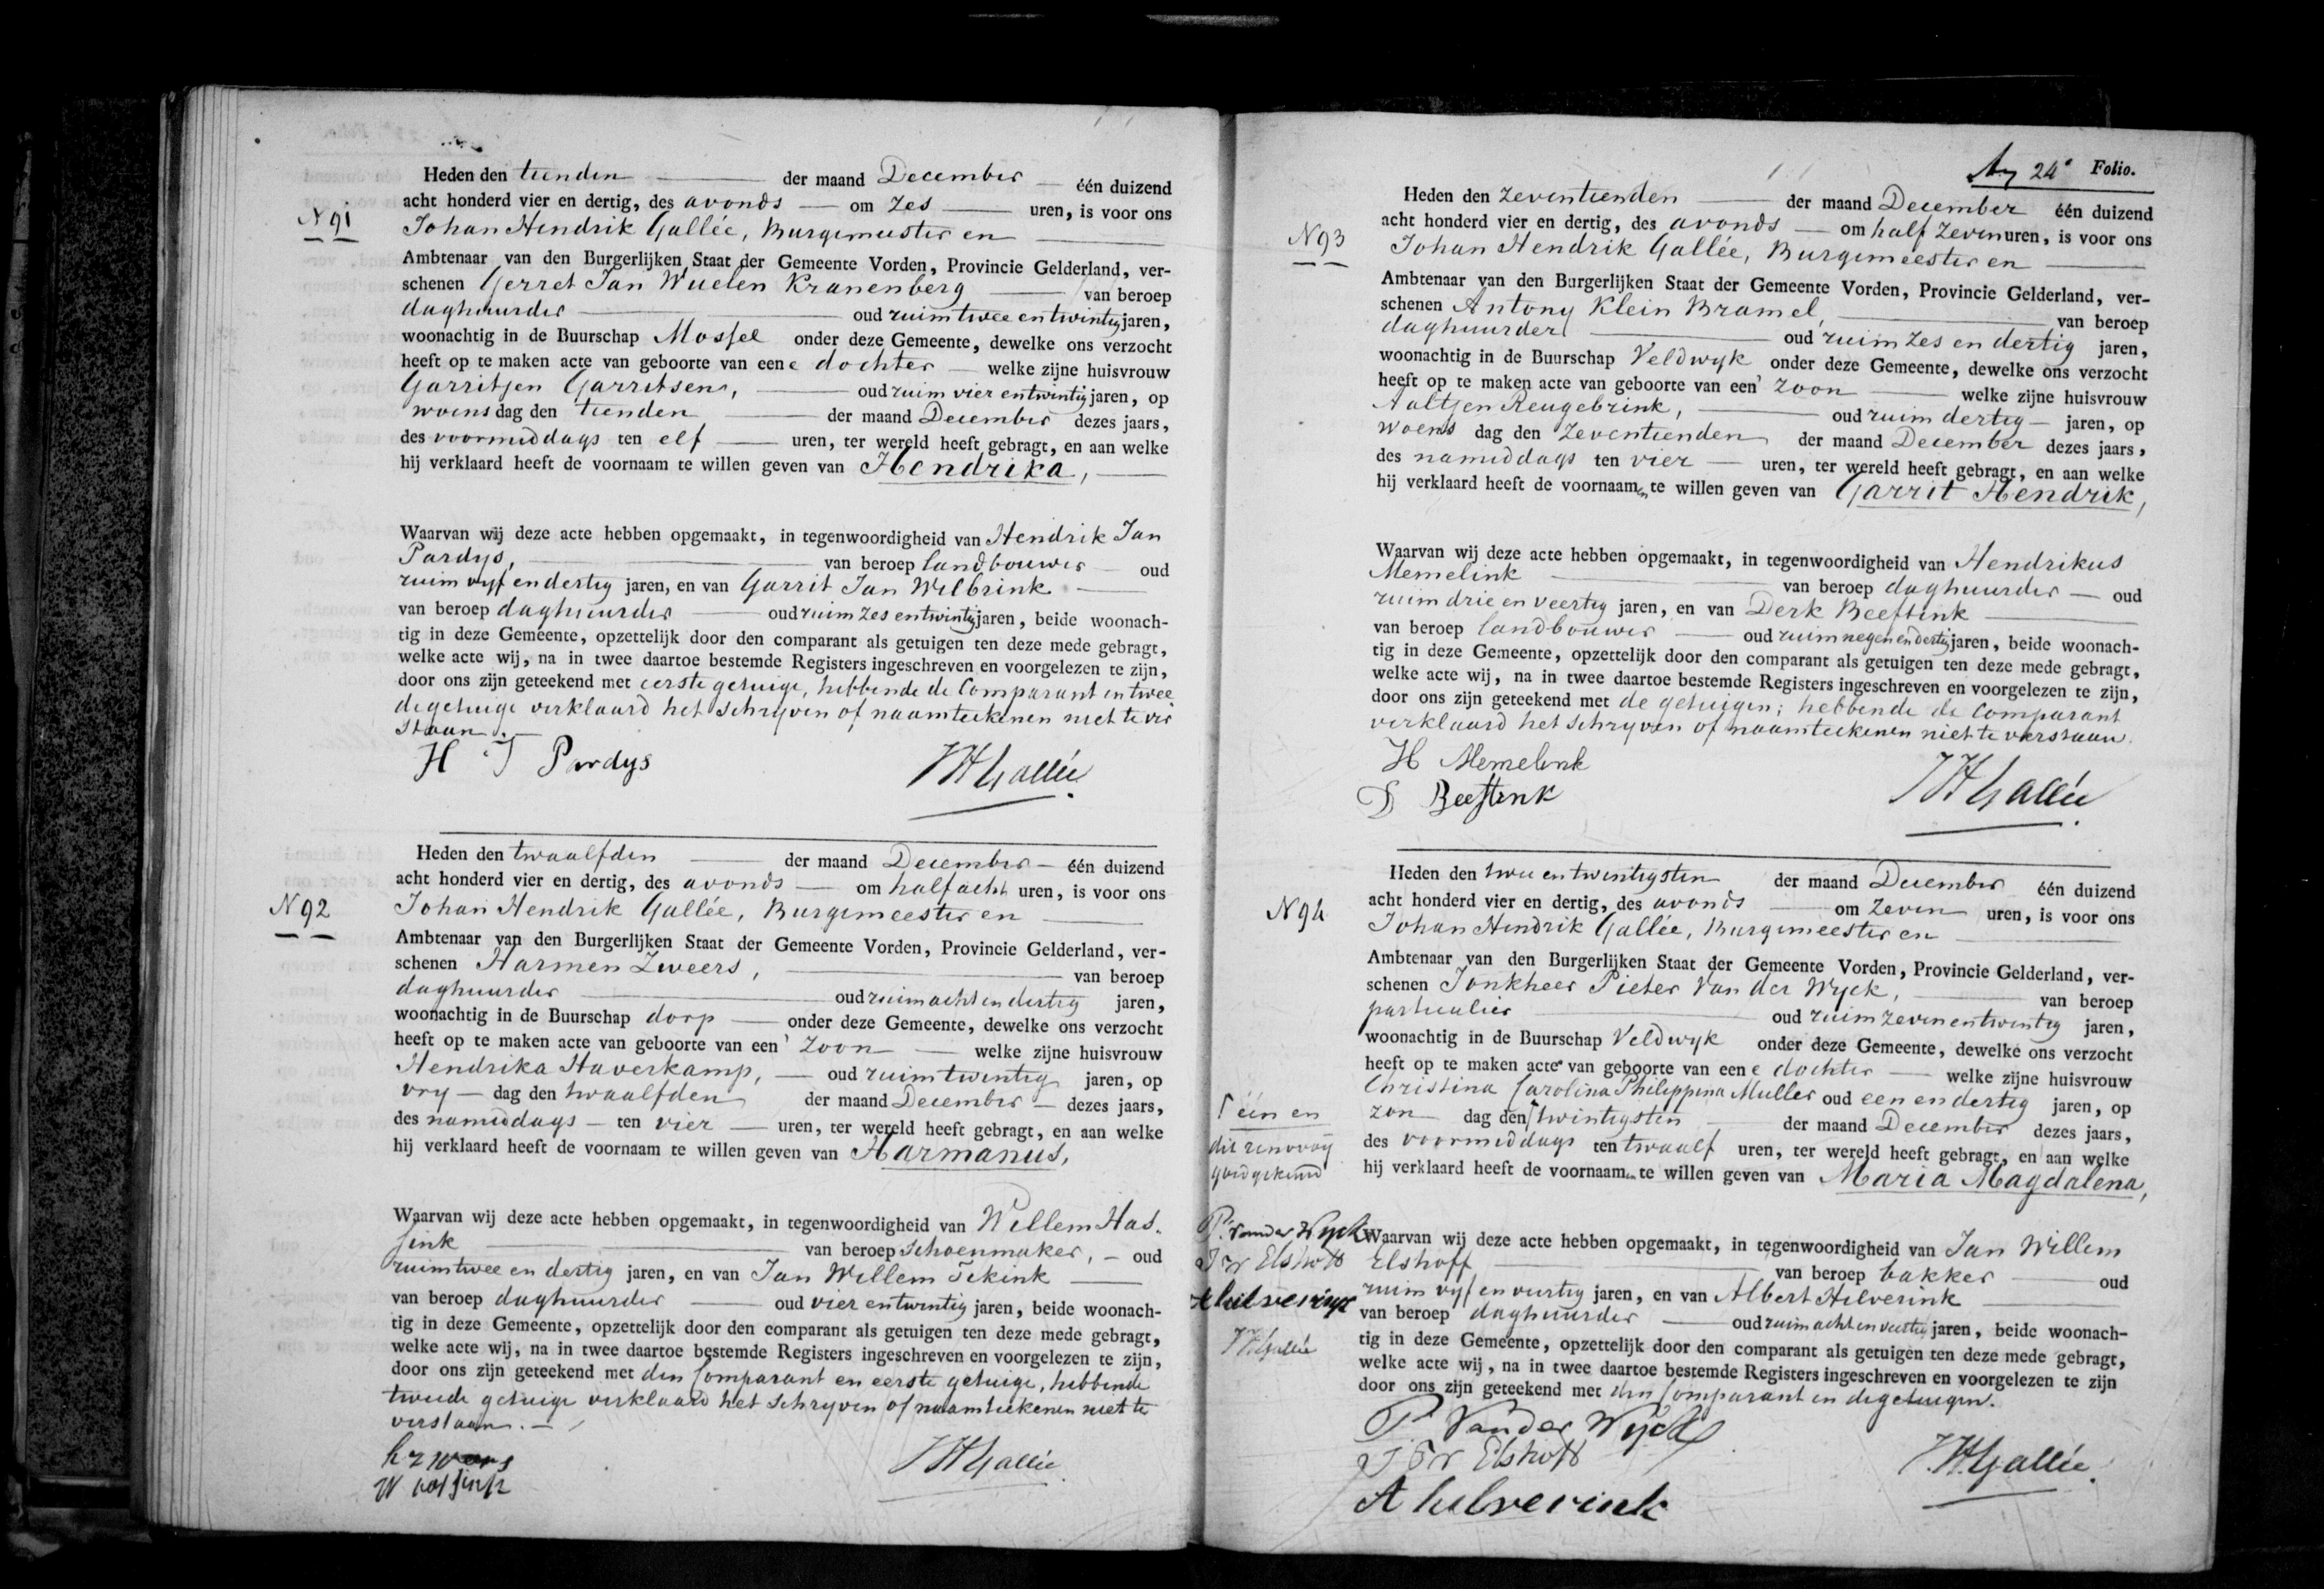 Heden den tienden der maand December één duizend
N 91
acht honderd vier en dertig, des avonds om zes uren, is voor ons
Johan Hendrik Gallée, Burgemeester en
Ambtenaar van den Burgerlijken Staat der Gemeente Vorden, Provincie Gelderland, ver-
schenen Gerret Jan Wuelen Kranenberg van beroep
daghuurder oud ruim twee en twintig jaren,
woonachtig in de Buurschap Mossel onder deze Gemeente, dewelke ons verzocht
heeft op te maken acte van geboorte van eene dochter welke zijne huisvrouw
Garritjen Garritsen, oud ruim vier en twintig jaren, op
woensdag den tienden der maand December dezes jaars,
des voormiddags ten elf uren, ter wereld heeft gebragt, en aan welke
hij verklaard heeft de voornaam te willen geven van Hendrika,
Waarvan wij deze acte hebben opgemaakt, in tegenwoordigheid van Hendrik Jan
Pardys, van beroep landbouwer oud
ruim vyf en dertig jaren, en van Garrit Jan Wilbrink
van beroep daghuurder oud ruim zes en twintig jaren, beide woonach-
tig in deze Gemeente, opzettelijk door den comparant als getuigen ten deze mede gebragt,
welke acte wij, na in twee daartoe bestemde Registers ingeschreven en voorgelezen te zijn,
door ons zijn geteekend met eerste getuige, hebbende de Comparant en twee
de getuige verklaard het schryven of naamteekenen niet te ver
staan.
H J Pardys
JH Gallée
Heden den twaalfden der maand December één duizend
acht honderd vier en dertig, des avonds om half acht uren, is voor ons
N 92
Johan Hendrik Gallée, Burgemeester en
Ambtenaar van den Burgerlijken Staat der Gemeente Vorden, Provincie Gelderland, ver-
schenen Harmen Zweers, van beroep
daghuurder oud ruim acht en dertig jaren,
woonachtig in de Buurschap dorp onder deze Gemeente, dewelke ons verzocht
heeft op te maken acte van geboorte van een zoon welke zijne huisvrouw
Hendrika Haverkamp, oud ruim twintig jaren, op
vry dag den twaalfden der maand December dezes jaars,
des namiddags ten vier uren, ter wereld heeft gebragt, en aan welke
hij verklaard heeft de voornaam te willen geven van Harmanus,
Waarvan wij deze acte hebben opgemaakt, in tegenwoordigheid van Willem Has-
sink van beroep schoenmaker, oud
ruim twee en dertig jaren, en van Jan Willem Tekink
van beroep daghuurder oud vier en twintig jaren, beide woonach-
tig in deze Gemeente, opzettelijk door den comparant als getuigen ten deze mede gebragt,
welke acte wij, na in twee daartoe bestemde Registers ingeschreven en voorgelezen te zijn,
door ons zijn geteekend met den Comparant en eerste getuige, hebbende
tweede getuige verklaard het schryven of naamteekenen niet te
verstaan.
JH Gallée
W hassink
24e Folio.
Heden den zeventienden der maand December één duizend
acht honderd vier en dertig, des avonds om half zeven uren, is voor ons
N 93
Johan Hendrik Gallée, Burgemeester en
Ambtenaar van den Burgerlijken Staat der Gemeente Vorden, Provincie Gelderland, ver-
schenen Antony Klein Bramel, van beroep
daghuurder oud ruim zes en dertig jaren,
woonachtig in de Buurschap Veldwyk onder deze Gemeente, dewelke ons verzocht
heeft op te maken acte van geboorte van een zoon welke zijne huisvrouw
Aaltjen Reugebrink, oud ruim dertig jaren, op
woens dag den zeventienden der maand December dezes jaars,
des namiddags ten vier uren, ter wereld heeft gebragt, en aan welke
hij verklaard heeft de voornaamen te willen geven van Garrit Hendrik,
Waarvan wij deze acte hebben opgemaakt, in tegenwoordigheid van Hendrikus
Memelink van beroep daghuurder oud
ruim drie en veertig jaren, en van Derk Beeftink
van beroep landbouwer oud ruim negen en dertig jaren, beide woonach-
tig in deze Gemeente, opzettelijk door den comparant als getuigen ten deze mede gebragt,
welke acte wij, na in twee daartoe bestemde Registers ingeschreven en voorgelezen te zijn,
door ons zijn geteekend met de getuigen; hebbende de Comparant
verklaard het schryven of naamteekenen niet te verstaan.
H Memelink
D Beeftink
JH Gallée
Heden den twee en twintigsten der maand December één duizend
acht honderd vier en dertig, des avonds om zeven uren, is voor ons
N 94
Johan Hendrik Gallée, Burgemeester en
Ambtenaar van den Burgerlijken Staat der Gemeente Vorden, Provincie Gelderland, ver-
schenen Jonkheer Pieter Van der Wyck, van beroep
particulier oud ruim zeven en twintig jaren,
woonachtig in de Buurschap Veldwyk onder deze Gemeente, dewelke ons verzocht
heeft op te maken acte van geboorte van eene dochter welke zijne huisvrouw
Christina Carolina Philippina Muller oud een en dertig jaren, op
zon dag den twintigsten der maand December dezes jaars,
des voormiddags ten twaalf uren, ter wereld heeft gebragt, en aan welke
hij verklaard heeft de voornaamen te willen geven van Maria Magdalena,
één en
dit renvooij
goedgekeurd
P. Van der Wyck
J W Elshoff
A hilverink
JH Gallée
Waarvan wij deze acte hebben opgemaakt, in tegenwoordigheid van Jan Willem
Elshoff van beroep bakker oud
ruim vyf en veertig jaren, en van Albert Hilverink
van beroep daghuurder oud ruim acht en veertig jaren, beide woonach-
tig in deze Gemeente, opzettelijk door den comparant als getuigen ten deze mede gebragt,
welke acte wij, na in twee daartoe bestemde Registers ingeschreven en voorgelezen te zijn
door ons zijn geteekend met den Comparant en de getuigen.
P. Van der Wyck
J W Elshoff
JH Gallée
A hilverink